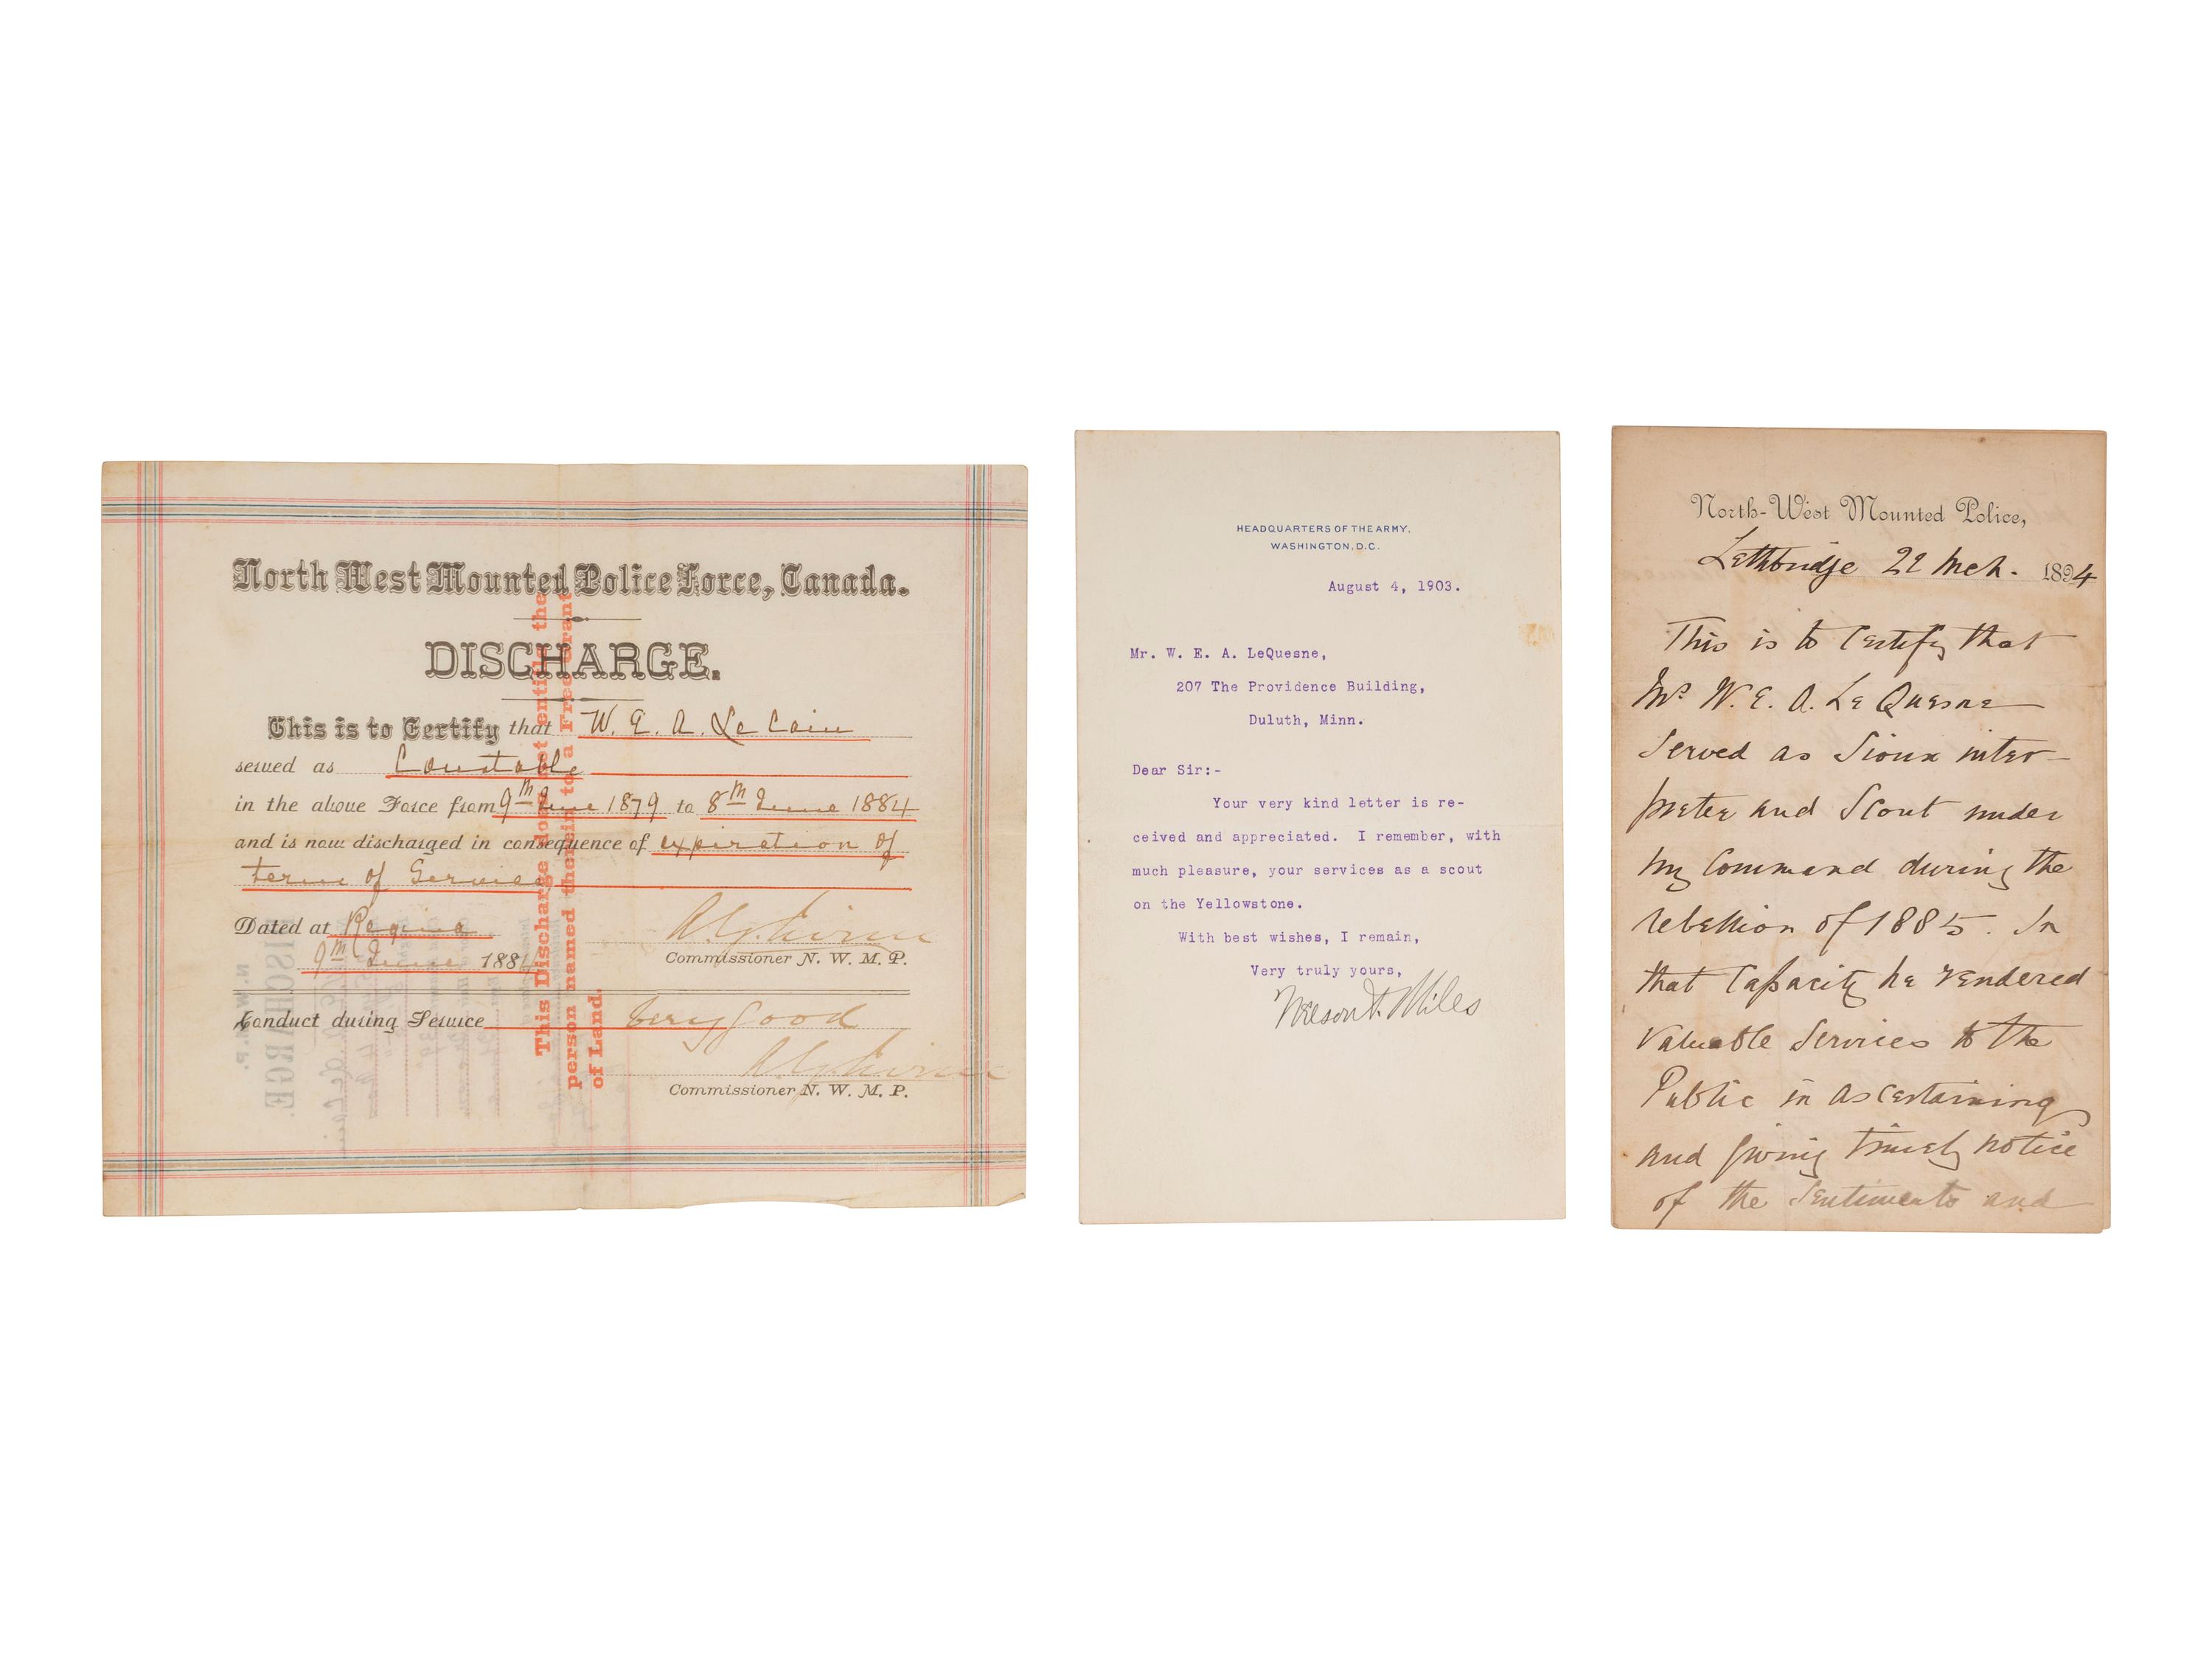 North West Mounted Police Force, Canada.
DISCHARGE.
This is to Certify that W. E. A. Le Cain
served as Constable
in the above Force from 9th June 1879 to 8th June 1884
and is now discharged in consequence of expiration of
term of Service
Dated at Regina
9th June 1884
Commissioner N. W. M. P.
Conduct during Service Very Good
Commissioner N. W. M. P.
This Discharge does not entitle the
person named therein to a Free Grant
of Land.
HEADQUARTERS OF THE ARMY,
WASHINGTON, D.C.
August 4, 1903.
Mr. W. E. A. LeQuesne,
207 The Providence Building,
Duluth, Minn.
Dear Sir:-
Your very kind letter is re-
ceived and appreciated. I remember, with
much pleasure, your services as a scout
on the Yellowstone.
With best wishes, I remain,
Very truly yours,
Nelson A. Miles
North-West Mounted Police,
Lethbridge 22 Mch. 1894
This is to Certify that
Mr W. E. A. Le Quesne
Served as Sioux inter-
preter and Scout under
my Command during the
rebellion of 1885. In
that Capacity he rendered
Valuable Services to the
Public in ascertaining
and giving timely notice
of the Sentiments and